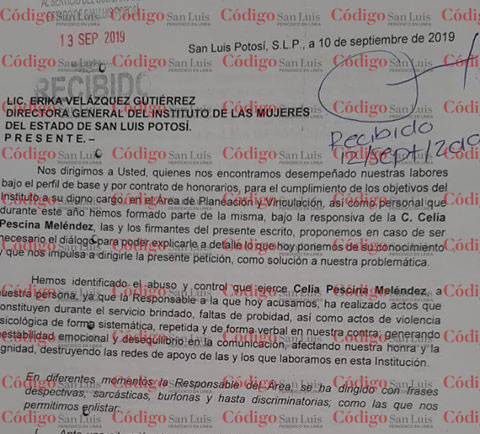 AL SERVICIO DEL
13 SEP 2019
RECIBIDO
San Luis Potosí, S.L.P., a 10 de septiembre de 2019
LIC. ERIKA VELÁZQUEZ GUTIÉRREZ
DIRECTORA GENERAL DEL INSTITUTO DE LAS MUJERES
DEL ESTADO DE SAN LUIS POTOSÍ.
P R E S E N T E. –
Recibido
12/sept/20
Nos dirigimos a Usted, quienes nos encontramos desempeñado nuestras labores
bajo el perfil de base y por contrato de honorarios, para el cumplimiento de los objetivos del
Instituto a su digno cargo, en el Área de Planeación y Vinculación, así como personal que
durante este año hemos formado parte de la misma, bajo la responsiva de la C. Celia
Pescina Meléndez, las y los firmantes del presente escrito, proponemos en caso de ser
necesario el diálogo para poder explicarle a detalle lo que hoy ponemos de su conocimiento
y que nos impulsa a dirigirle la presente petición, como solución a nuestra problemática.
Hemos identificado el abuso y control que ejerce Celia Pescina Meléndez, a
nuestra persona, ya que la Responsable a la que hoy acusamos, ha realizado actos que
constituyen durante el servicio brindado, faltas de probidad, así como actos de violencia
sicológica de forma sistemática, repetida y de forma verbal en nuestra contra, generando
estabilidad emocional y desequilibrio en la comunicación, afectando nuestra honra y la
ignidad, destruyendo las redes de apoyo de las y los que laboramos en esta Institución.
En diferentes momentos la Responsable del Área, se ha dirigido con frases
despectivas, sarcásticas, burlonas y hasta discriminatorias; como las que nos
permitimos enlistar:
Código San Luis
PERIÓDICO EN LÍNEA